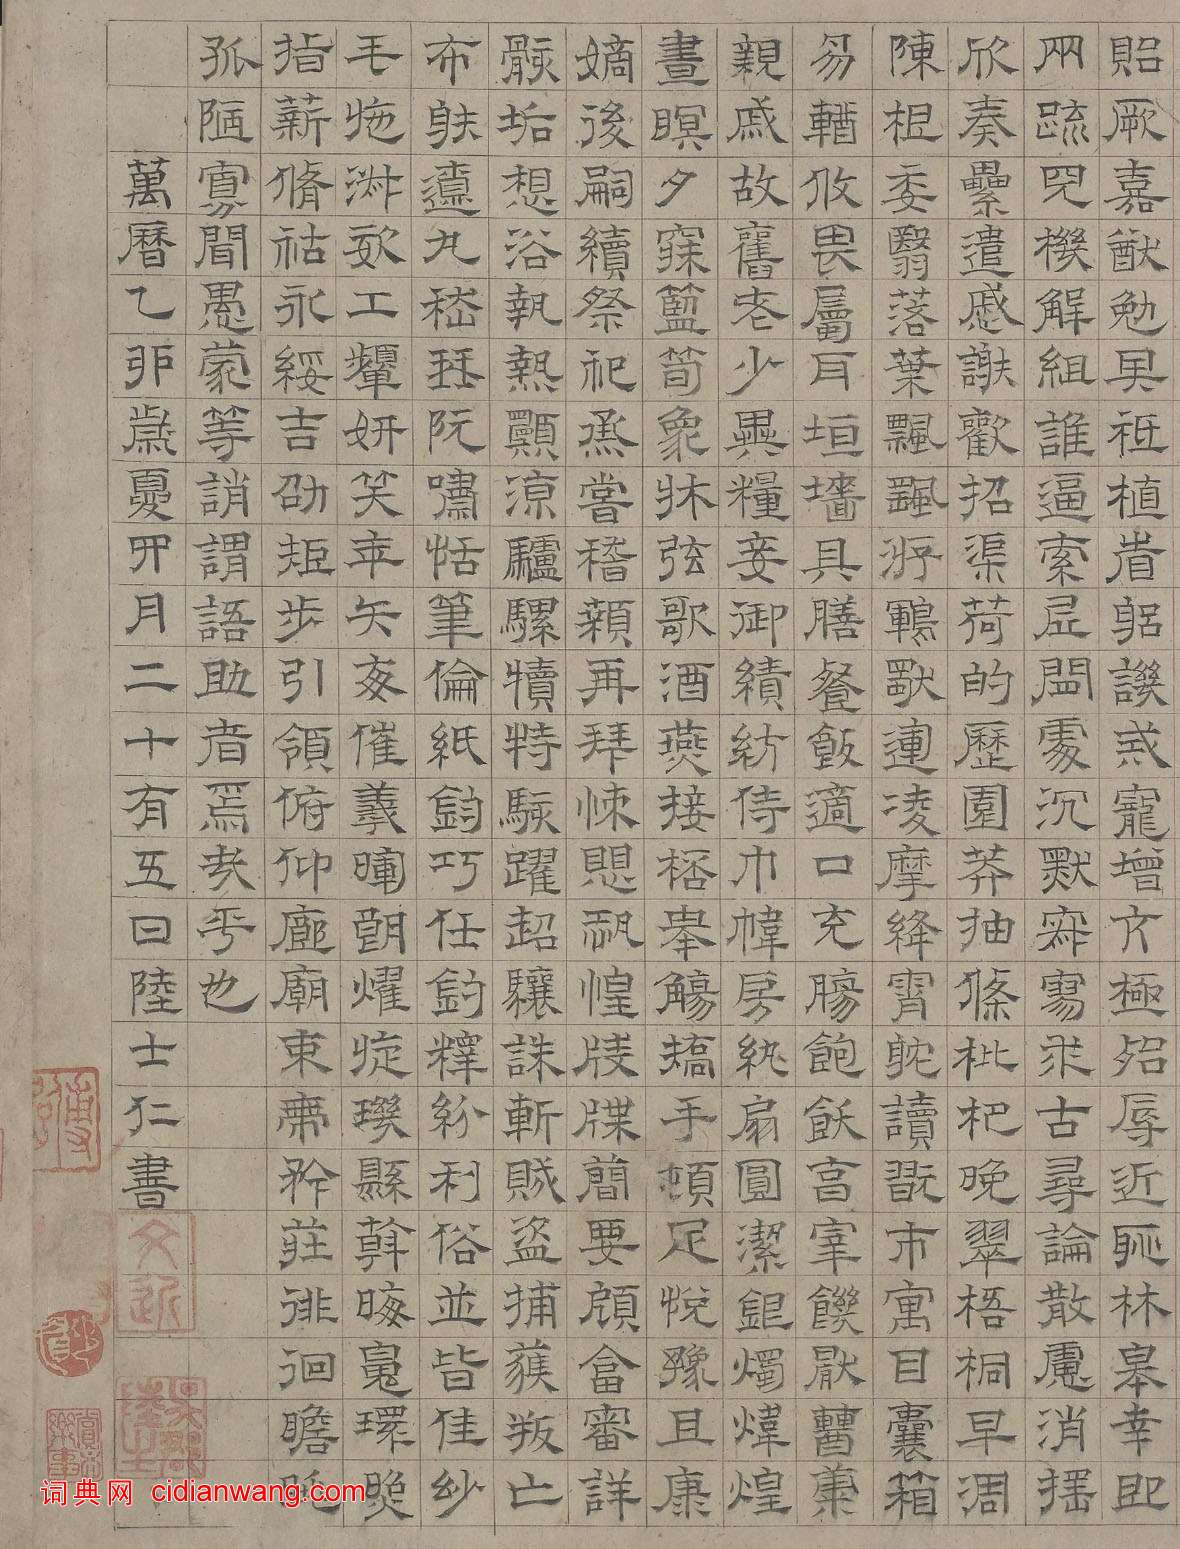 貽厥嘉猷勉其祗植省躬譏戒寵增亢極殆辱近恥林皋幸即
兩疏見機解組誰逼索居閒處沉默寂寥求古尋論散慮消搖
欣奏纍遣慼謝歡招渠荷的歷園莽抽條枇杷晚翠梧桐早凋
陳根委翳落葉飄颻游鵾獨運凌摩絳霄耽讀翫市寓目囊箱
易輶攸畏屬耳垣牆具膳餐飯適口充腸飽飫亯宰饑厭糟糠
親戚故舊老少異糧妾御績紡侍巾幃房紈扇圓潔銀燭煒煌
晝瞑夕寐籃筍象牀弦歌酒燕接桮舉觴矯手頓足悅豫且康
嫡後嗣續祭祀烝嘗稽顙再拜悚懼恐惶牋牒簡要顧答審詳
骸垢想浴執熱願涼驢騾犢特駭躍超驤誅斬賊盜捕獲叛亡
布射遼丸嵇琴阮嘯恬筆倫紙鈞巧任釣釋紛利俗並皆佳妙
毛施淑姿工顰妍笑年矢每催羲暉朗燿旋璣縣斡晦魄環照
指薪脩祜永綏吉劭矩步引領俯仰廊廟束帶矜莊徘徊瞻眺
孤陋寡聞愚蒙等誚謂語助者焉哉乎也
萬曆乙卯歲夏四月二十有五日陸士仁書
词典网 cidianwang.com